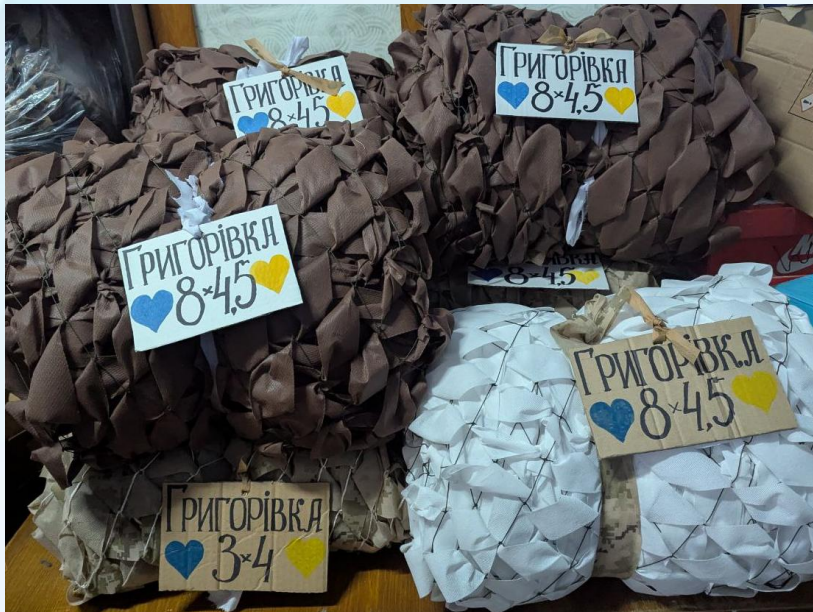 ГРИГОРІВКА
8×4,5
ГРИГОРІВКА
8×4,5
ГРИГОРІВКА
8×4,5
8×4,5
ГРИГОРІВКА
8×4,5
ГРИГОРІВКА
3×4